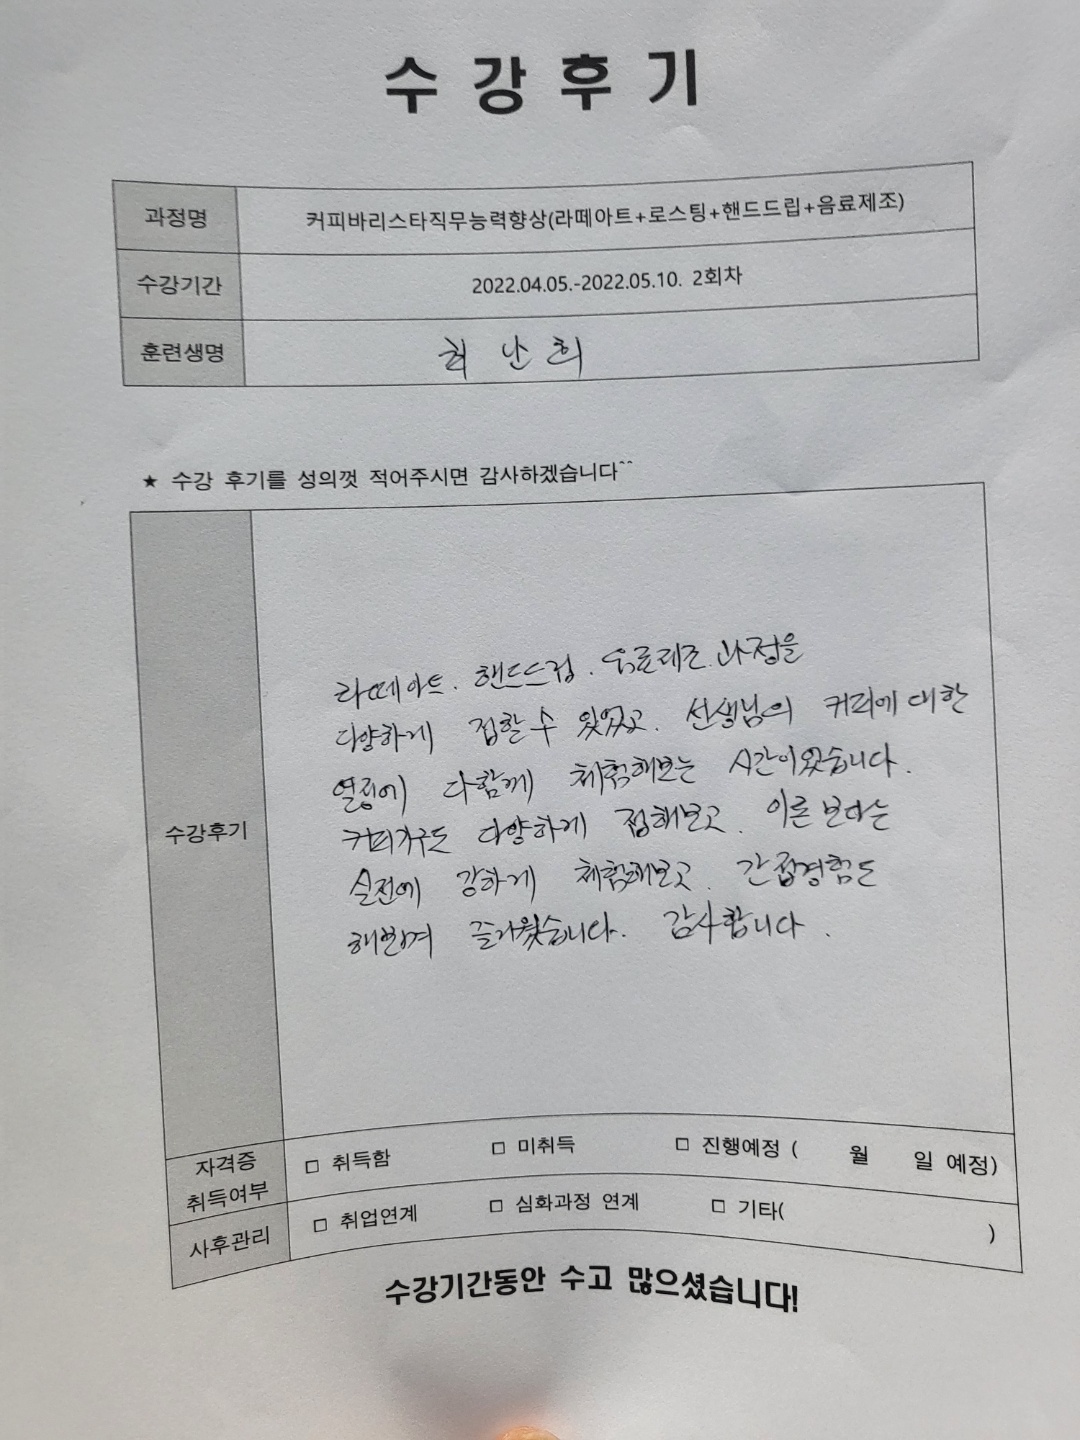 수강후기
과정명 커피바리스타직무능력향상(라떼아트+로스팅+핸드드립+음료제조)
수강기간 2022.04.05.-2022.05.10. 2회차
훈련생명 최 난 희
★ 수강 후기를 성의껏 적어주시면 감사하겠습니다^^
라떼아트. 핸드드립. 음료제조.과정을
다양하게 접할수 있었고. 선생님의 커피에 대한
열정에 다함께 체험해보는 시간이었습니다.
커피기구도 다양하게 접해보고. 이론보다는
수강후기
실전에 강하게 체험해보고. 간접경험도
해 즐거웠습니다. 감사합니다.
자격증 취득여부 □ 취득함 □ 미취득 □ 진행예정 ( 월 일 예정)
사후관리 □ 취업연계 □ 심화과정 연계 □ 기타( )
수강기간동안 수고 많으셨습니다!